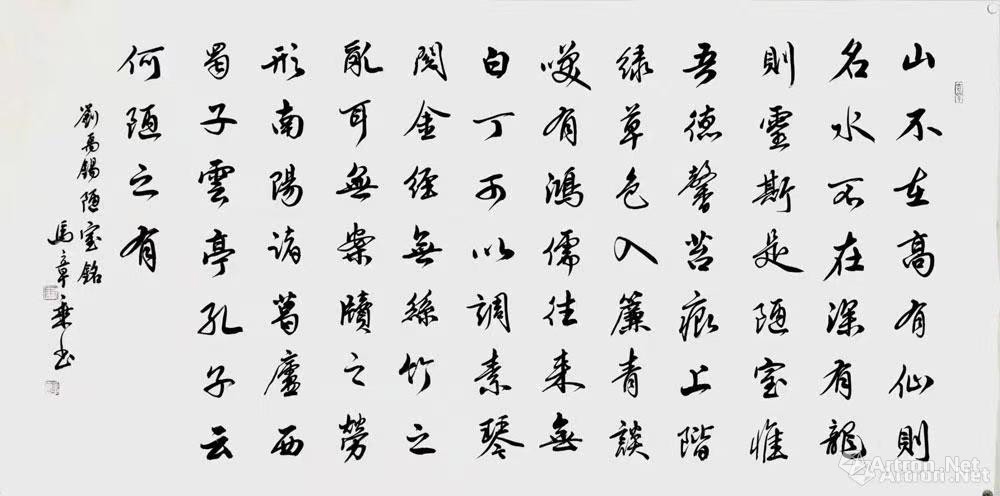 山不在高有仙則
名水不在深有龍
則靈斯是陋室惟
吾德馨苔痕上階
緑草色入簾青談
咲有鴻儒往来無
白丁可以調素琴
閱金經無絲竹之
亂耳無案牘之勞
形南陽諸葛廬西
蜀子雲亭孔子云
何陋之有
劉禹錫陋室銘
馬章乘书
Artron.Net
Artron.Net